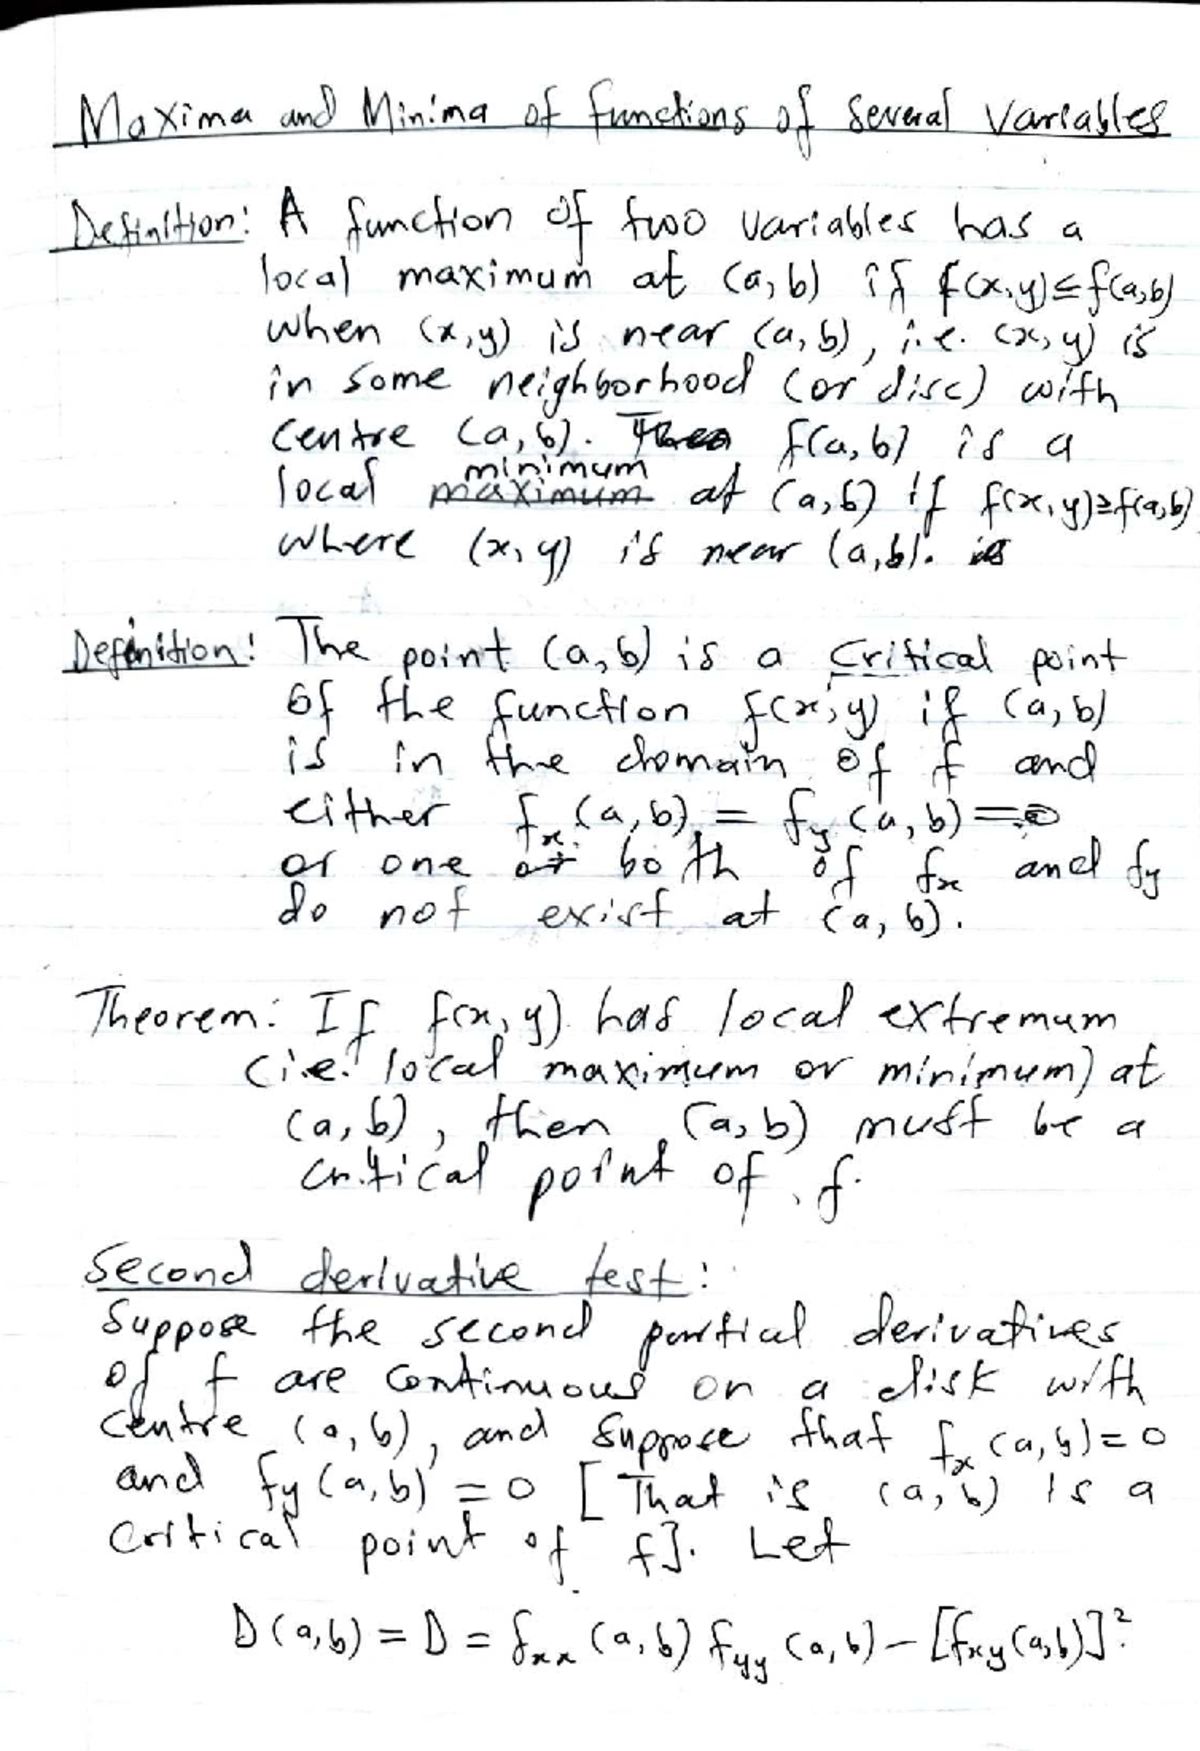 Maxima and Minima of functions of Several Variables
Definition: A function of two variables has a
local maximum at (a,b) if f(x,y)≤f(a,b)
when (x,y) is near (a,b), i.e. (x,y) is
in some neighborhood (or disc) with
centre (a,b). Then f(a,b) is a
minimum
local maximum at (a,b) if f(x,y)≥f(a,b)
where (x,y) is near (a,b). is
Definition: The point (a,b) is a critical point
of the function f(x,y) if (a,b)
is in the domain of f and
either fx(a,b) = fy(a,b)=0
or one or both of fx and fy
do not exist at (a,b).
Theorem: If f(x,y) has local extremum
(i.e. local maximum or minimum) at
(a,b), then (a,b) must be a
critical point of f.
Second derivative test:
Suppose the second partial derivatives
of f are continuous on a disk with
centre (a,b), and suppose that fx(a,b)=0
and fy(a,b)=0 [That is (a,b) is a
critical point of f]. Let
D(a,b) = D = fxx(a,b) fyy(a,b) - [fxy(a,b)]².